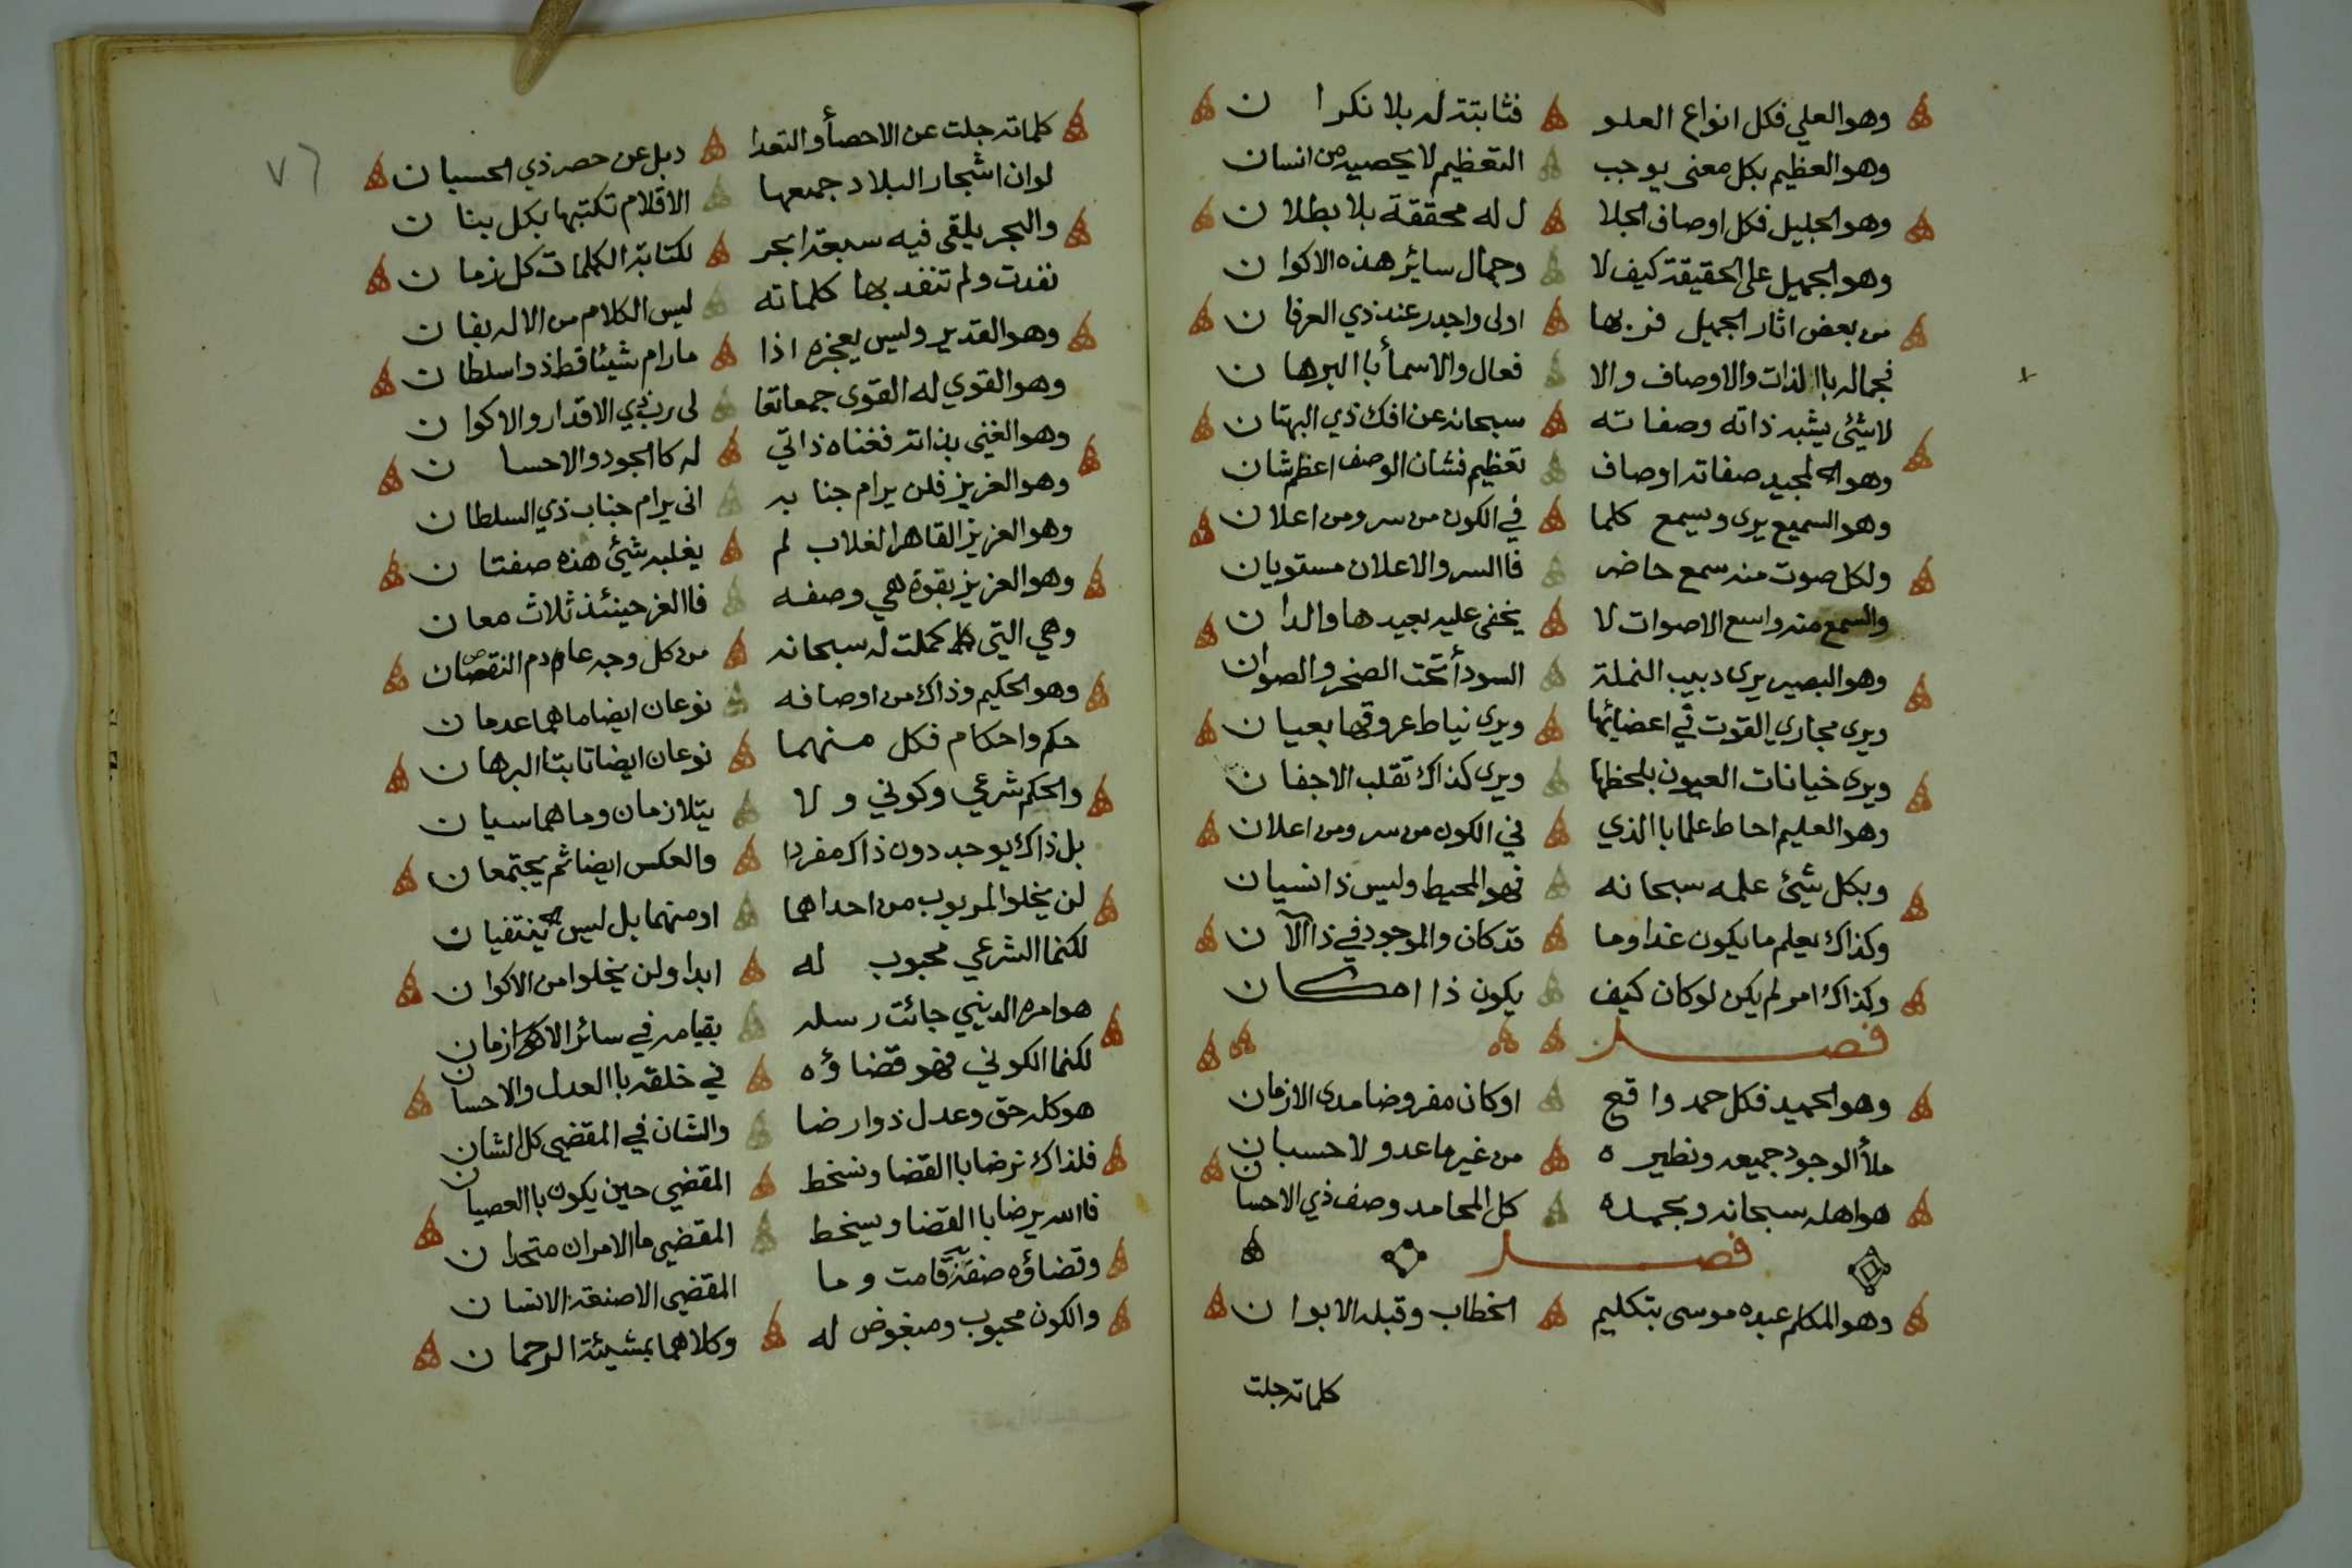 وهو العلي فكل انواع العلو فثابتة له بلا نكران
وهو العظيم بكل معنى يوجب التعظيم لا يحصيه من انسان
وهو الجليل فكل اوصاف الجلا ل له محققة بلا بطلان
وهو الجميل على الحقيقة كيف لا وجمال سائر هذه الاكوان
من بعض اثار الجميل فربها اولى واجدر عند ذي العرفان
فجماله باالذات والاوصاف والا فعال والاسمأ باالبرهان
لا شيئ يشبه ذاته وصفاته سبحانه عن افك ذي البهتان
وهو المجيد صفاته اوصاف تعظيم فشان الوصف اعظم شان
وهو السميع يرى ويسمع كلما في الكون من سر ومن اعلان
ولكل صوت منه سمع حاضر فاالسر والاعلان مستويان
والسمع منه واسع الاصوات لا يخفى عليه بعيدها والدان
وهو البصير يرى دبيب النملة السودأ تحت الصخر والصوان
ويرى مجاري القوت في اعضائها ويرى نياط عروقها بعيان
ويرى خيانات العيون بلحظها ويرى كذاك تقلب الاجفان
وهو العليم احاط علما باالذي في الكون من سر ومن اعلان
وبكل شيئ علمه سبحانه فهو المحيط وليس ذا نسيان
وكذاك يعلم ما يكون غدا وما قد كان والموجود في ذا الآن
وكذاك امر لم يكن لو كان كيف يكون ذا امكان
فصل
وهو الحميد فكل حمد واقع اوكان مفروضا مدى الازمان
ملأ الوجود جميعه ونظيره من غير ما عد ولا حسبان
هو اهله سبحانه وبحمده كل المحامد وصف ذي الاحسان
فصل
وهو المكلم عبده موسى بتكليم الخطاب وقبله الابوان
كلماته جلت
٧٦
كلماته جلت عن الاحصأ والتعدا دبل عن حصر ذي الحسبان
لوان اشجار البلاد جميعها الاقلام تكتبها بكل بنان
والبحر يلقى فيه سبعة ابحر لكتابة الكلمات كل زمان
نفدت ولم تنفد بها كلماته ليس الكلام من الاله بفان
وهو القدير وليس يعجزه اذا ما رام شيئا قط ذو اسلطان
وهو القوي له القوى جمعا تعا لى رب ذي الاقدار والاكوان
وهو الغني بذاته فغناه ذاتي له كا الجود والاحسان
وهو العزيز فلن يرام جنابه انى يرام جناب ذي السلطان
وهو العزيز القاهر الغلاب لم يغلبه شيئ هذه صفتان
وهو العزيز بقوة هي وصفه فاالعز حينئذ ثلاث معان
وهي التي كملت له سبحانه من كل وجه عادم النقصان
وهو الحكيم وذاك من اوصافه نوعان ايضا ما هما عدمان
حكم واحكام فكل منهما نوعان ايضا ثابتا البرهان
والحكم شرعي وكوني ولا يتلازمان وما هما سيان
بل ذاك يوجد دون ذاك مفردا والعكس ايضا ثم يجتمعان
لن يخلوا المربوب من احداهما او منهما بل ليس ينتفيان
لكنما الشرعي محبوب له ابدا ولن يخلوا من الاكوان
هو امره الديني جائت رسله بقيامه في سائر الازمان
لكنما الكوني فهو قضاؤه في خلقه باالعدل والاحسان
هو كله حق وعدل ذوا رضا والشان في المقضي كل الشان
فلذاك نرضا باالقضا ونسخط المقضي حين يكون باالعصيان
فاالله يرضا باالقضا ويسخط المقضي ما الامران متحدان
وقضاؤه صفة قامت وما المقضي الا صنعة الانسان
والكون محبوب ومبغوض له وكلاهما بمشيئة الرحمان